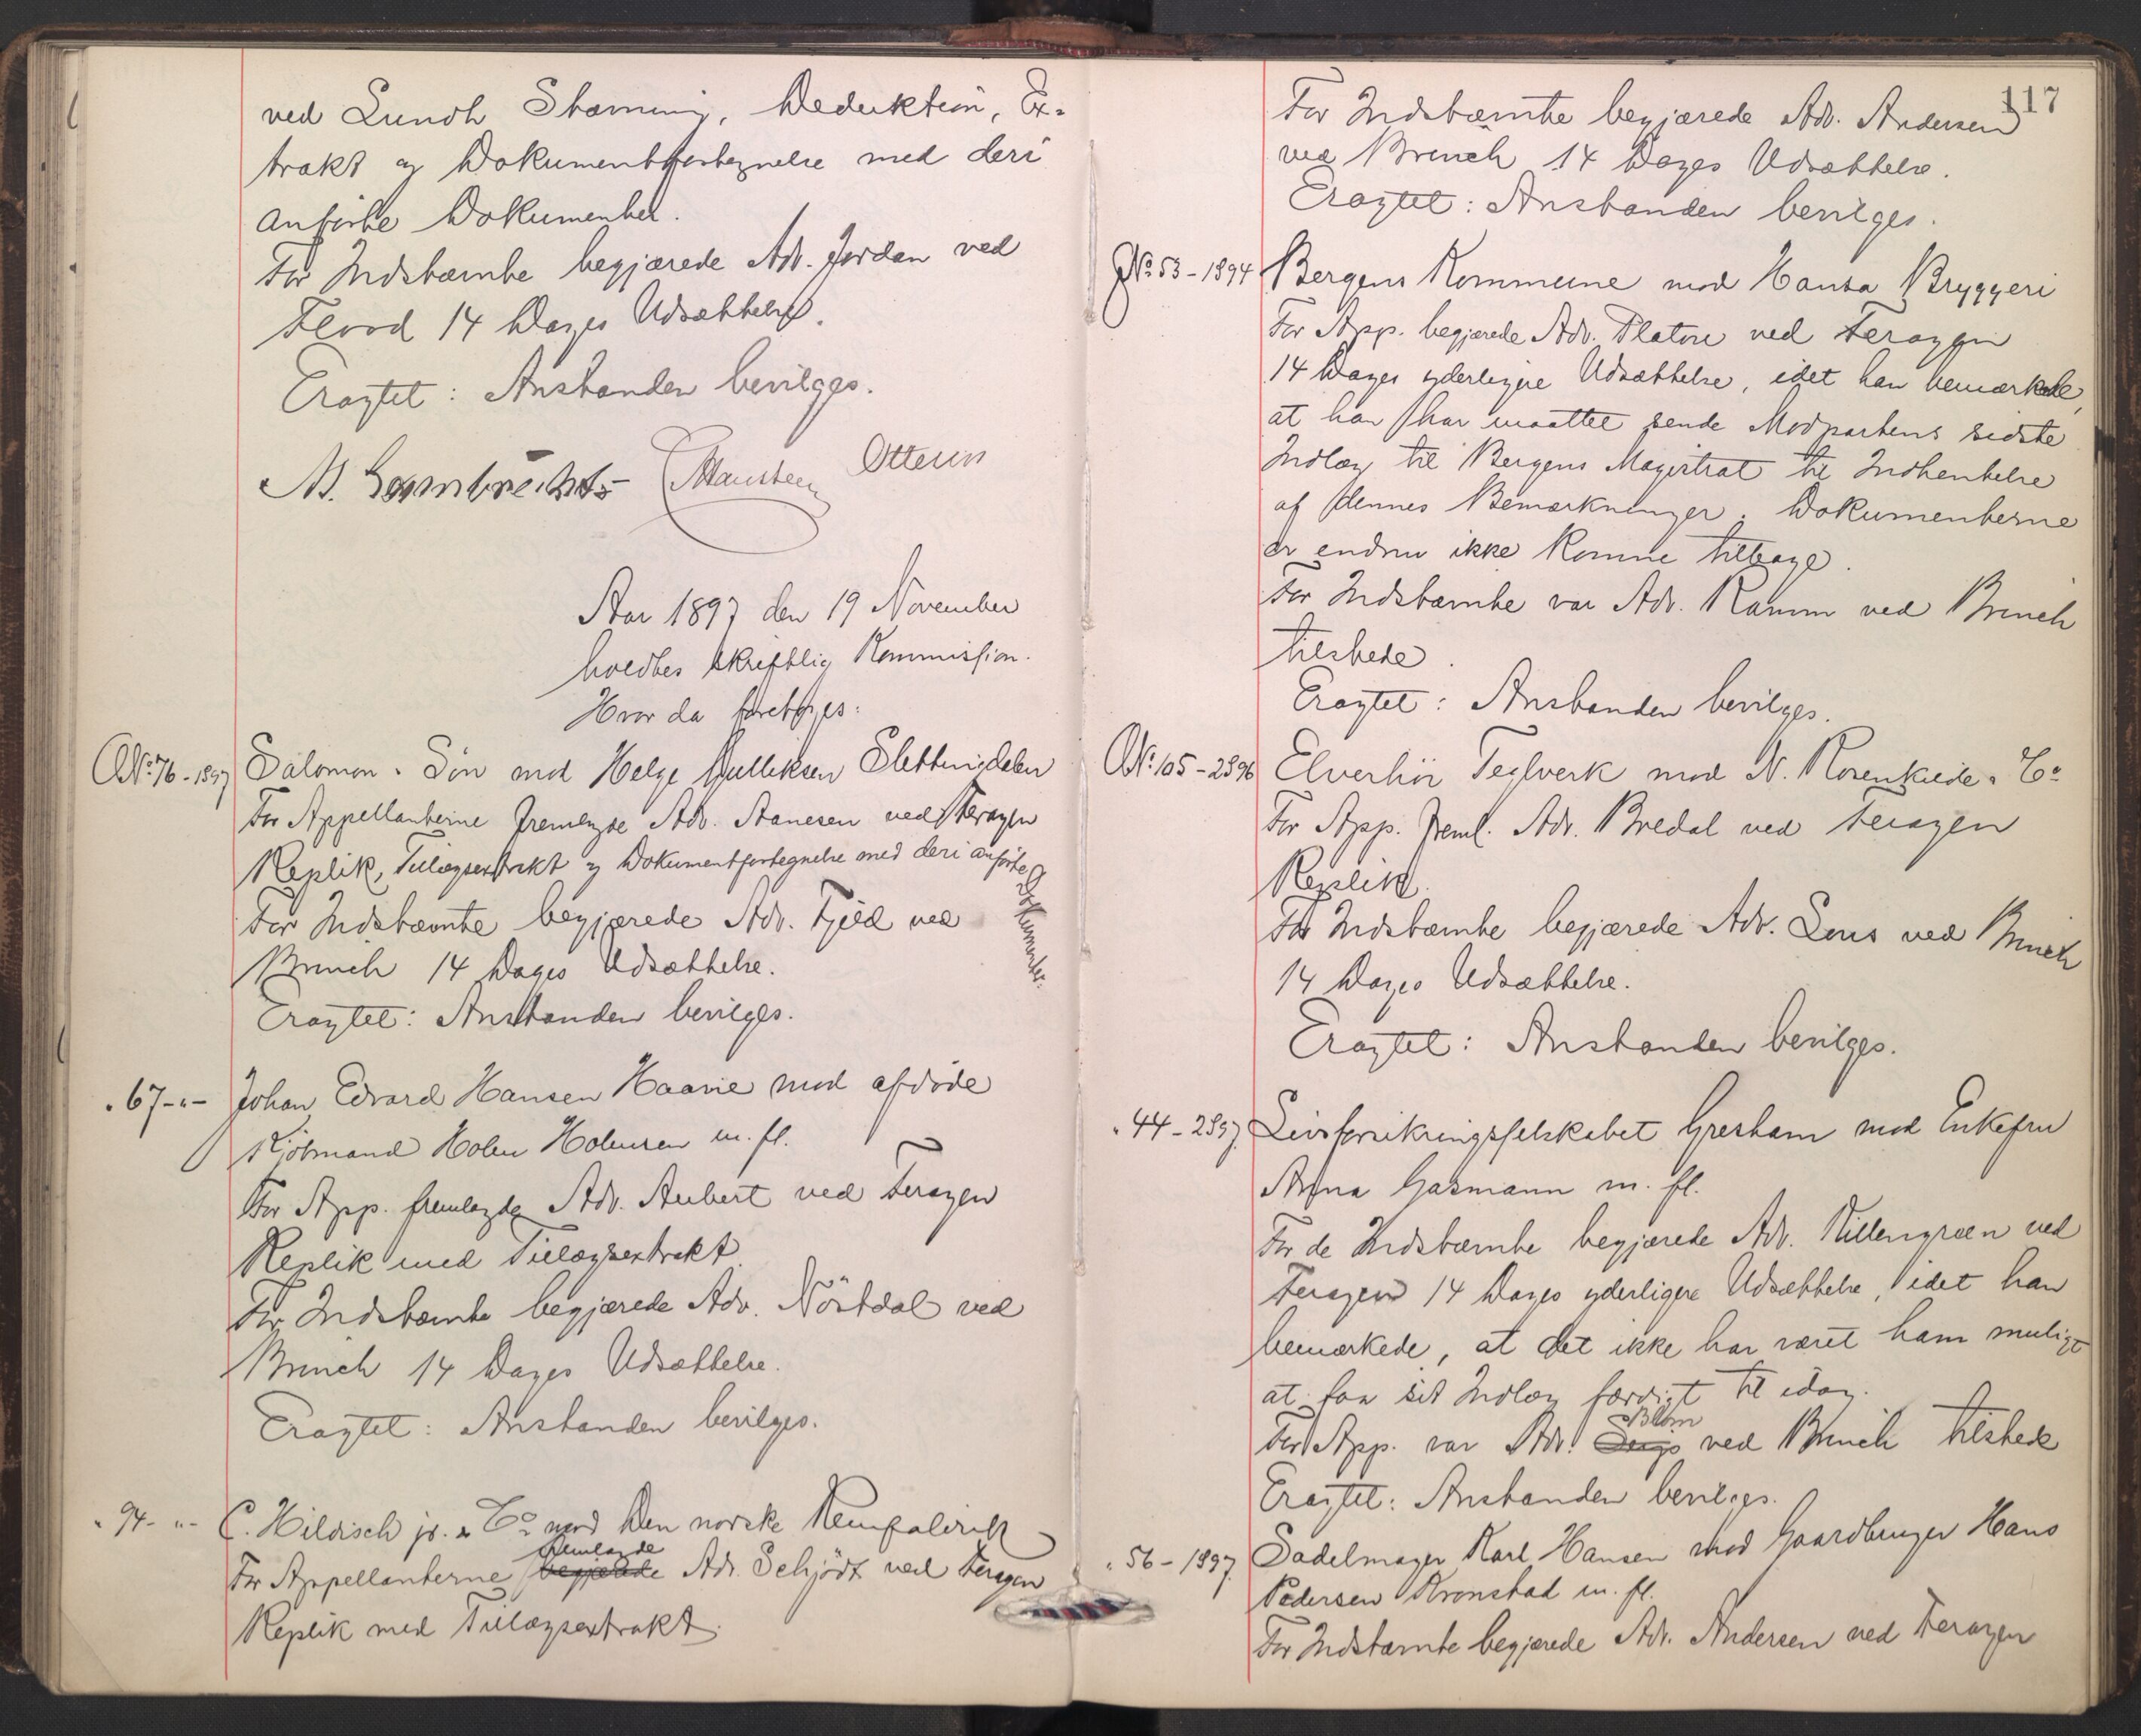 ved Lundh Stævning, Deduktion, Ex-
trakt og Dokumentfortegnelse med deri
anførte Dokumenter.
For Indstævnte begjærede Adv. Jordan ved
Flood 14 Dages Udsættelse.
Eragtet: Anstanden bevilges.
M. Lambrechts Hansteen Ottesen
Aar 1897 den 19 November
holdtes skriftlig Kommission.
Hvor da foretoges:
No. 76-1897 Salomon & Søn mod Helge Gulleksen Slettemdalen
For Appellanterne fremlagde Adv. Aanesen ved Feragen
Replik, Tillægsextrakt og Dokumentfortegnelse med deri anførte Dokumenter.
For Indstævnte begjærede Adv. Fjeld ved
Brinch 14 Dages Udsættelse.
Eragtet: Anstanden bevilges.
" 67-"- Johan Edvard Hansen Haavie mod afdøde
Kjøbmand Holm Holmsen m. fl.
For App. fremlagde Adv. Aubert ved Feragen
Replik med Tillægsextrakt.
For Indstævnte begjærede Adv. Nöstdal ved
Brinch 14 Dages Udsættelse.
Eragtet: Anstanden bevilges.
" 94-"- C. Hildisch jr. & Co. mod Den norske Remfabrik
fremlagde
For Appellanterne begjærede Adv. Schjödt ved Feragen
Replik med Tillægsextrakt.
117
For Indstævnte begjærede Adv. Andersen
ved Brinch 14 Dages Udsættelse.
Eragtet: Anstanden bevilges.
No. 53-1894 Bergens Kommune mod Hansa Bryggeri
For App. begjærede Adv. Platou ved Feragen
14 Dages yderligere Udsættelse, idet han bemærkede,
at han har maattet sende Modpartens sidste
Indlæg til Bergens Magistrat til Indhentelse
af dennes Bemærkninger. Dokumenterne
er endnu ikke komne tilbage.
For Indstævnte var Adv. Ramm ved Brinch
tilstede.
Eragtet: Anstanden bevilges.
No. 105-1896 Elverhöi Teglverk mod N. Rosenkilde & Co.
For App. freml. Adv. Bredal ved Feragen
Replik.
For Indstævnte begjærede Adv. Lous ved Brinch
14 Dages Udsættelse.
Eragtet: Anstanden bevilges.
" 44-1897. Livsforsikringsselskabet Gresham mod Enkefru
Anna Gasmann m. fl.
For de Indstævnte begjærede Adv. Killengreen ved
Feragen 14 Dages yderligere Udsættelse, idet han
bemærkede, at det ikke har været ham muligt
at faa sit Indlæg færdigt til idag.
Blom
For App. var Adv. ved Brinch tilstede
Eragtet: Anstanden bevilges.
" 56-1897. Sadelmager Karl Hansen mod Gaardbruger Hans
Pedersen Kronstad m. fl.
For Indstævnte begjærede Adv. Andersen ved Feragen